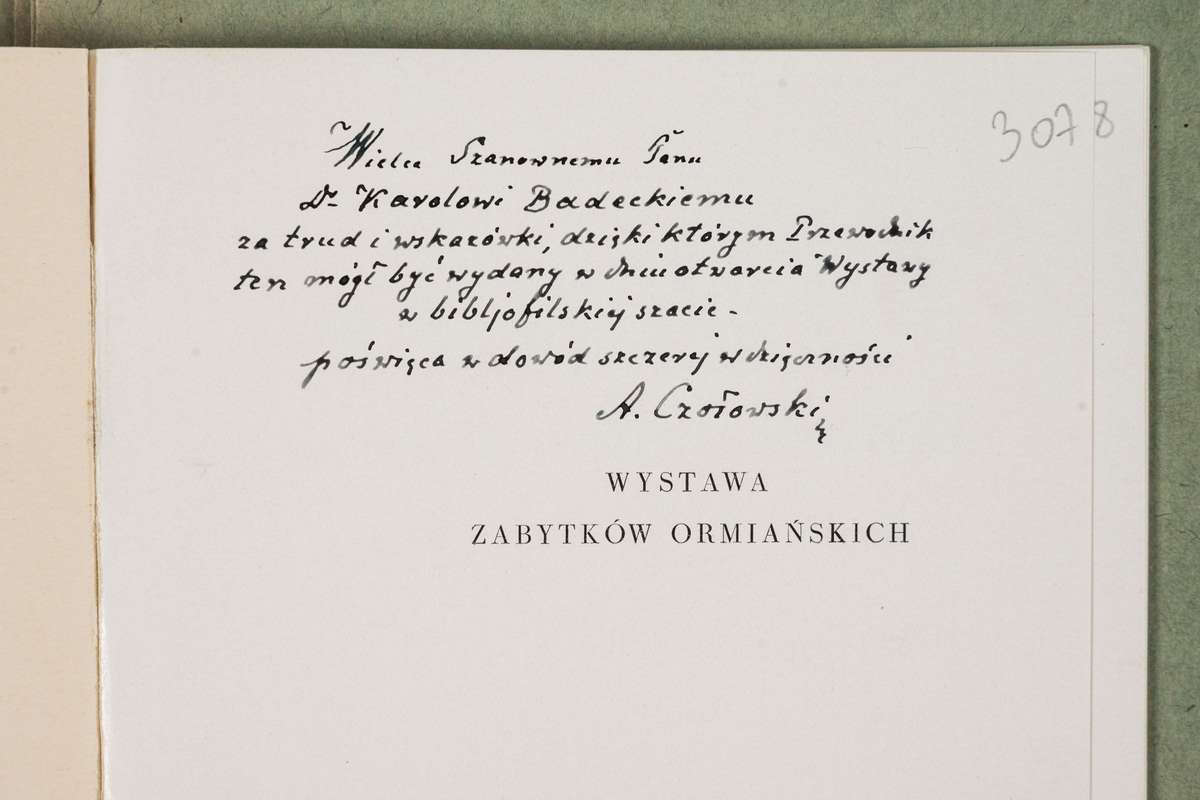 3078
Wielce Szanownemu Panu
Dr Karolowi Badeckiemu
za trud i wskazówki, dzięki którym Przewodnik
ten mógł być wydany w dniu otwarcia Wystawy
w bibljofilskiej szacie -
poświęca w dowód szczerej wdzięczności
A. Czołowski
WYSTAWA
ZABYTKÓW ORMIAŃSKICH